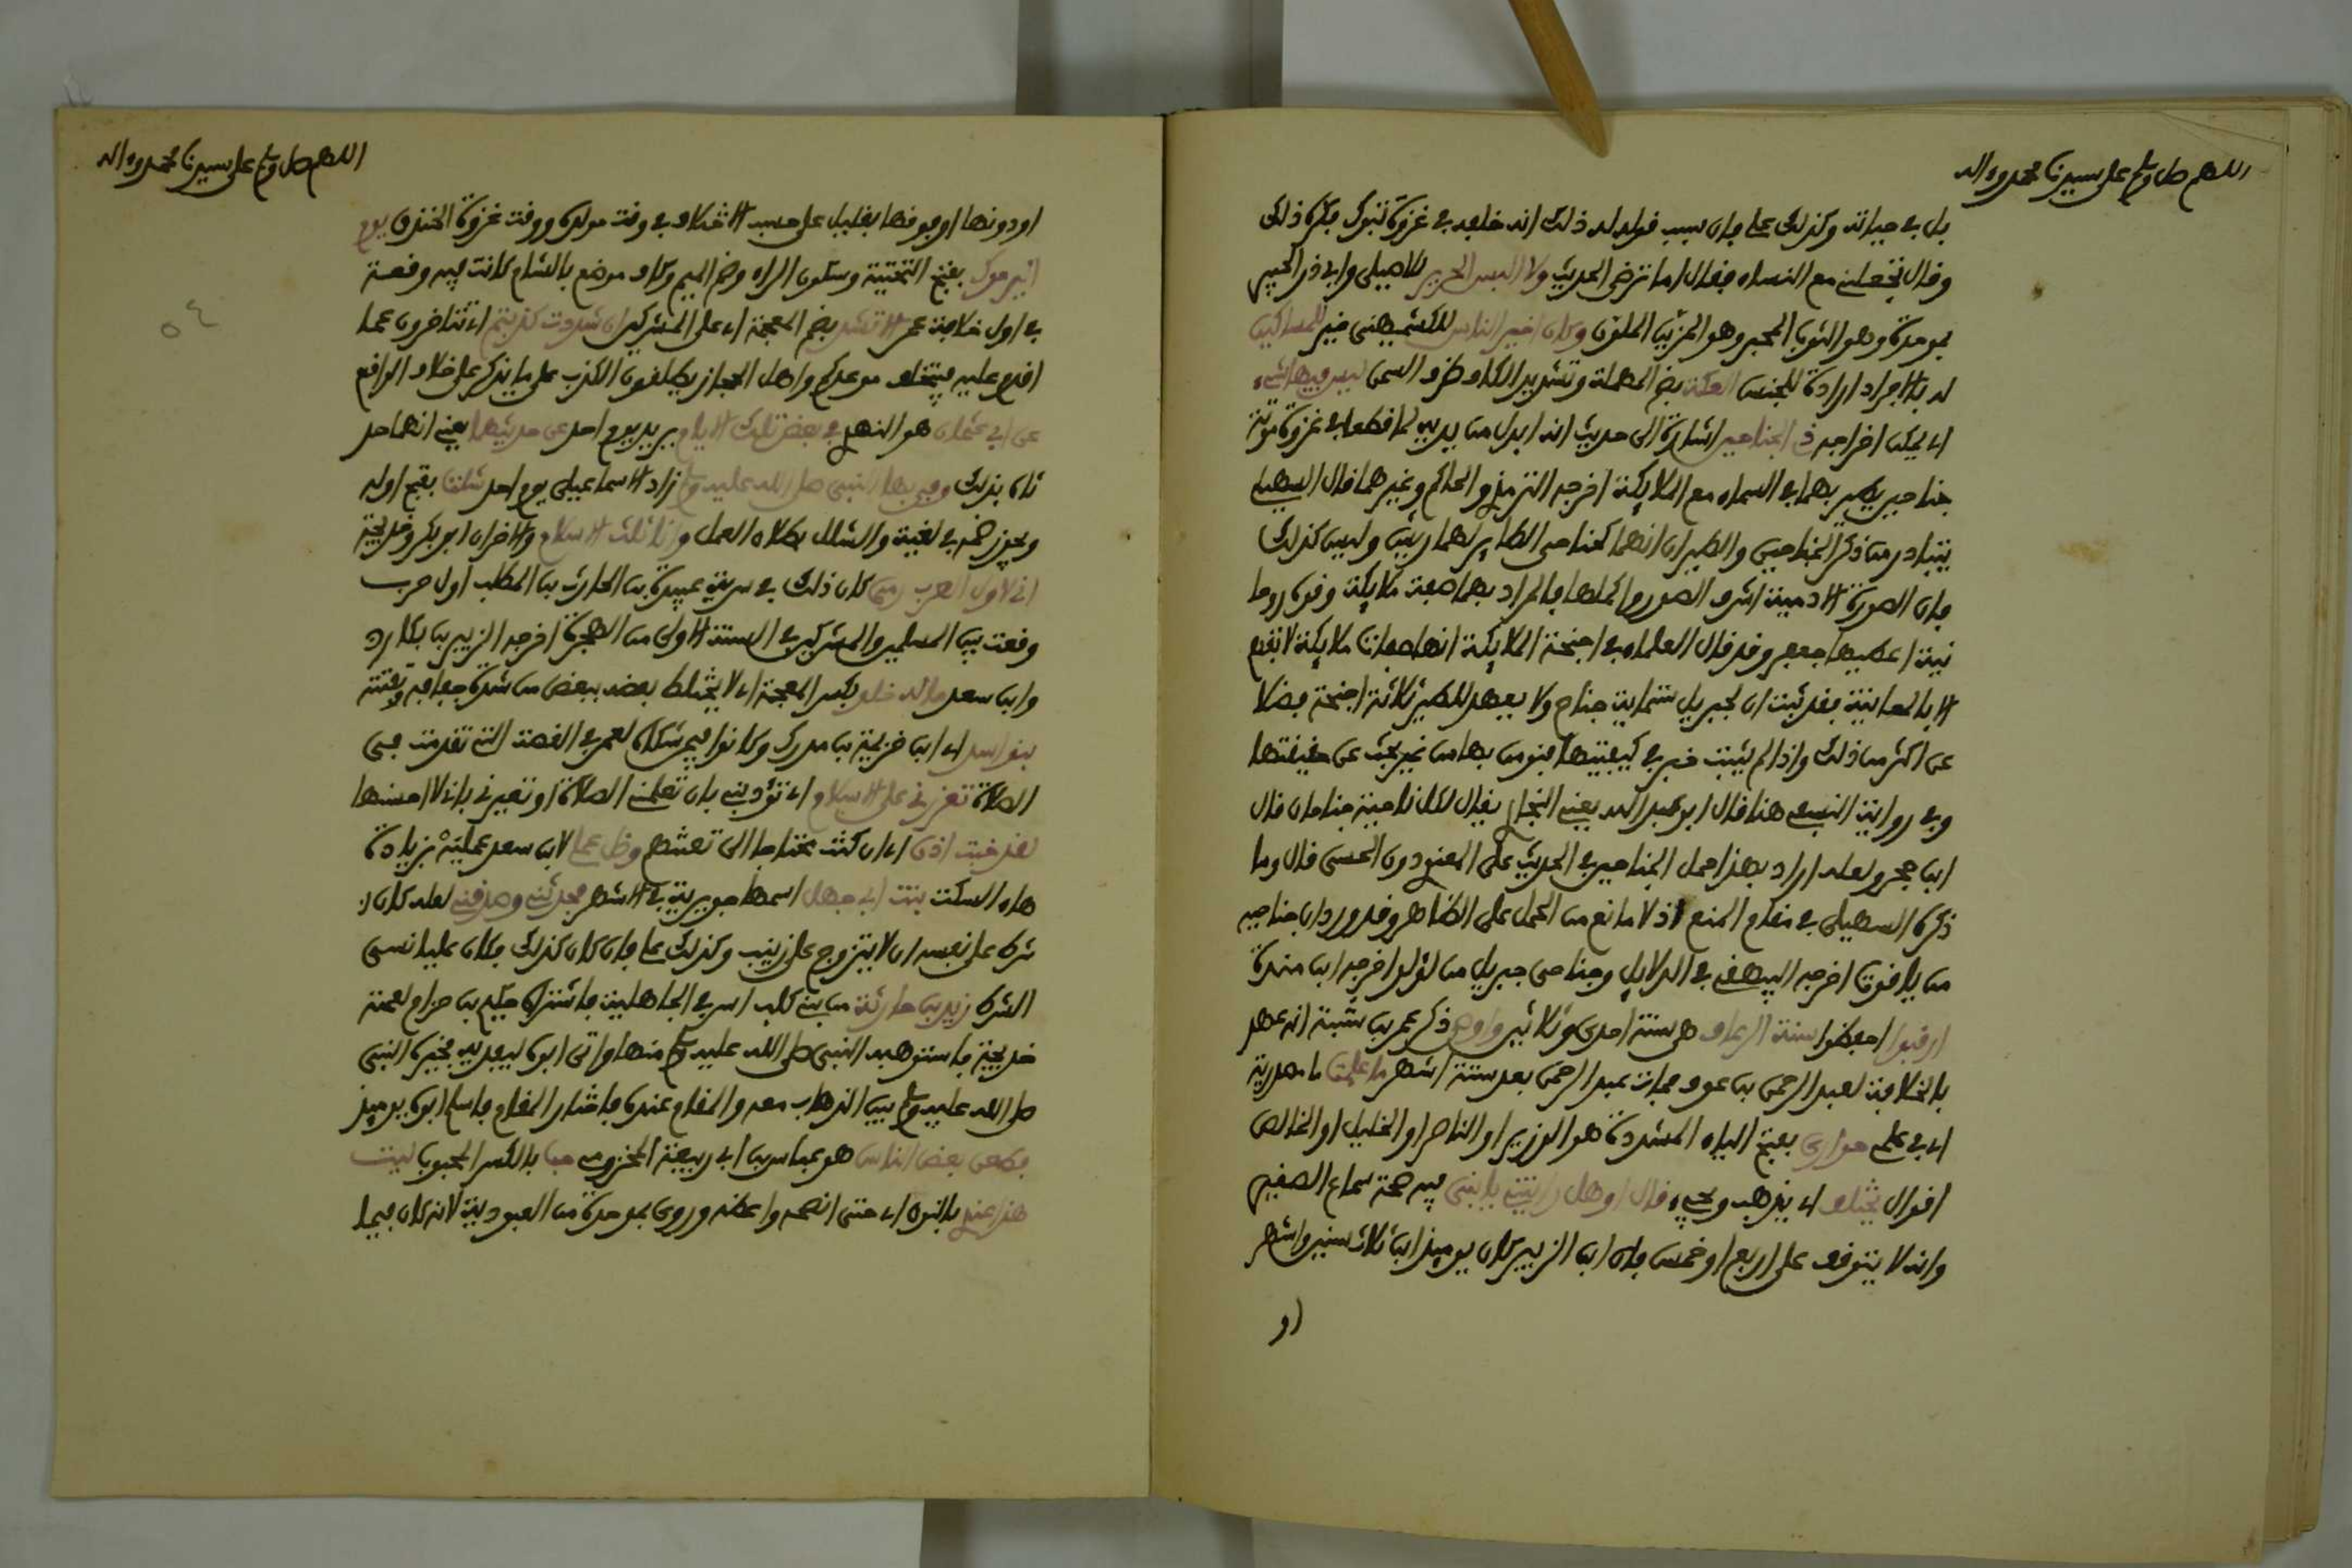 اللهم صل وسلم على سيدنا محمد وءاله
بل في حياته وكذلك علي فإن سبب قوله له ذلك انه خلفه في غزوة تبوك فكره ذلك
وقال تخلفني مع النساء فقال اما ترضى الحديث ولا البس الحرير للاصيلي وابي ذر الحبير
بموحدة وهو الثوب المحبر وهو المزين الملون وكان اخير الناس للكشميهني خير للمساكين
له بالافراد ارادة للجنس العكة بضم المهملة وتشديد الكاف ظرف السمن ليس فيها شيء
اي يمكن اخراجه ذي الجناحين اشارة الى حديث انه ابدل من يديه لما قطعا في غزوة موتة
جناحين يطير بهما في السماء مع الملائكة اخرجه الترمذي والحاكم وغيرهما قال السهيلي
يتبادر من ذكر الجناحين والطيران انهما كجناحي الطائر لهما ريش وليس كذلك
فإن الصورة الادمية اشرف الصور واكملها فالمراد بهما صفة ملائكة وقوة روحا
نية اعطيها جعفر وقد قال العلماء في اجنحة الملائكة انها صفات ملائكة لا تفهم
الا بالمعاينة فقد ثبت ان لجبريل ستماية جناح ولا يعهد للطير ثلاثة اجنحة فضلا
عن اكثر من ذلك واذا لم يثبت خبر في كيفيتها فنومن بها من غير بحث عن حقيقتها
وفي رواية النسفي هنا قال ابو عبد الله يعني البخاري يقال لكل ناحية جناحان قال
ابن حجر ولعله اراد بهذا حمل الجناحين في الحديث على المعنوي دون الحسي قال وما
ذكره السهيلي في مقام المنع اذ لا مانع من الحمل على الظاهر وقد ورد ان جناحيه
من ياقوت اخرجه البيهقي في الدلايل وجناحي جبريل من لؤلؤ اخرجه ابن مندة
ارقبوا احفظوا سنة الرعاف هي سنة احدى وثلاثين واوصى ذكر عمر بن شبة انه عهد
بالخلافة لعبد الرحمن بن عوف فمات عبد الرحمن بعد ستة اشهر ما علمت ما مصدرية
اي في علمي حواري بفتح الياء المشددة هو الوزير او الناصر او الخليل او الخالص
اقوال يختلف اي يذهب ويجيء قال او هل رايتني يا بني فيه صحة سماع الصغير
وانه لا يتوقف على اربع او خمس فإن ابن الزبير كان يوميذ ابن ثلاث سنين واشهر
او
اللهم صل وسلم على سيدنا محمد وءاله
او دونها او فوقها بقليل على حسب الاختلاف في وقت مولده ووقت غزوة الخندق يوم
اليرموك بفتح التحتية وسكون الراء وضم الميم وكاف موضع بالشام كانت فيه وقعة
في اول خلافة عمر الا تشد بضم المعجمة اي على المشركين ان شددت كذبتم اي تتاخرون عما
اقدم عليه فيتخلف موعدكم واهل الحجاز يطلقون الكذب على ما يذكر على خلاف الواقع
عن ابي عثمان هو النهدي في بعض تلك الايام يريد يوم احد عن حديثهما يعني انهما حد
ثاه بذلك وقى بها النبي صلى الله عليه وسلم زاد الاسماعيلي يوم احد شلت بفتح اوله
ويجوز ضمه في لغية والشلل بطلان العمل وانا ثلث الاسلام والاخران ابو بكر وخديجة
اني لاول العرب رمى كان ذلك في سرية عبيدة بن الحارث بن المطلب اول حرب
وقعت بين المسلمين والمشركين في السنة الاولى من الهجرة اخرجه الزبير بن بكار
وابن سعد ماله خلط بكسر المعجمة اي لا يختلط بعضه ببعض من شدة جفافه وتفتته
بنو اسد اي ابن خزيمة بن مدركة وكانوا فيمن شكاه لعمر في القصة التي تقدمت في
الصلاة تعزرني على الاسلام اي تؤدبني بان تعلمني الصلاة او تعيرني باني لا احسنها
لقد خبت اذن اي ان كنت محتاجا الى تعليمهم وضل عملي لابن سعد عمليه بزيادة
هاء السكت بنت ابي جهل اسمها جويرية في الاشهر فحدثني وصدقني لعله كان
شرط على نفسه ان لا يتزوج على زينب وكذلك علي فإن كان كذلك فكان عليا نسي
الشرط زيد بن حارثة من بني كلب اسر في الجاهلية فاشتراه حكيم بن حزام لعمته
خديجة فاستوهبه النبي صلى الله عليه وسلم منها واتى ابوه ليفديه فخيره النبي
صلى الله عليه وسلم بين الذهاب معه والمقام عنده فاختار المقام فاسلم ابوه يوميذ
فطعن بعض الناس هو عباس بن ابي ربيعة المخزومي حب بالكسر المحبوب ليت
هذا عندي بالنون اي حتى انصحه واعظه وروي بموحدة من العبودية لانه كان فيما
٥٤